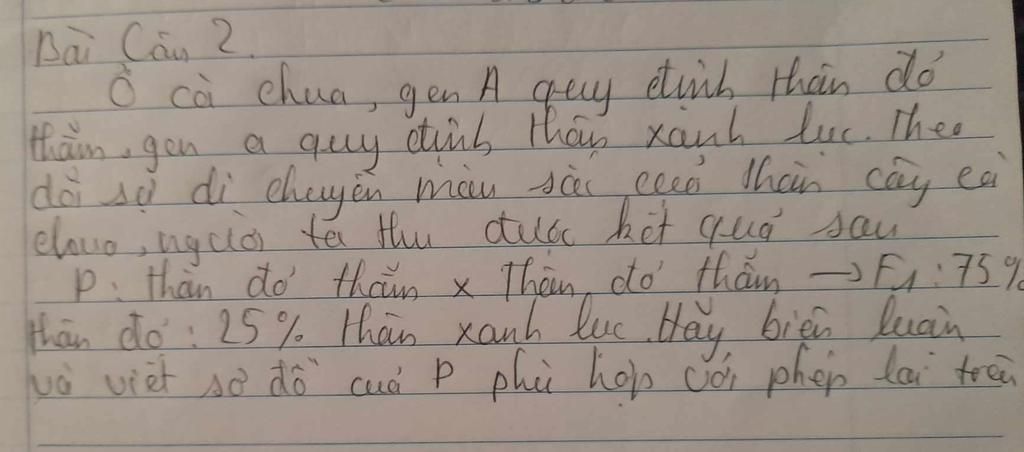 Bài Câu 2.
Ở cà chua, gen A quy định thân đỏ
thẫm, gen a quy định thân xanh lục. Theo
dõi sự di chuyền màu sắc của thân cây cà
chua, người ta thu được kết quả sau
P: thân đỏ thẫm x Thân đỏ thẫm → F1: 75%
thân đỏ: 25% thân xanh lục. Hãy biện luận
và viết sơ đồ của P phù hợp với phép lai trên